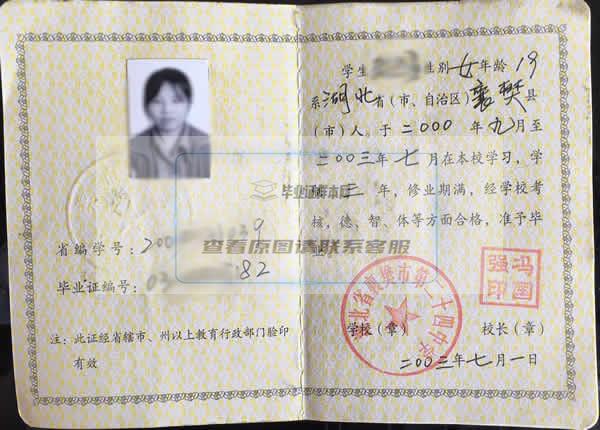 省编学号：200 039
毕业证编号：03 82
注：此证经省辖市、州以上教育行政部门验印
有效
学生 性别女年龄19
系湖北省（市、自治区）襄樊县
（市）人。于二000年九月至
二00三年七月在本校学习，学
三年，修业期满，经学校考
核，德、智、体等方面合格，准予毕
业
学校（章） 校长（章）
二00三年七月一日
湖北省襄樊市第二十四中学
冯国强印
毕业证样本库
查看原图请联系客服